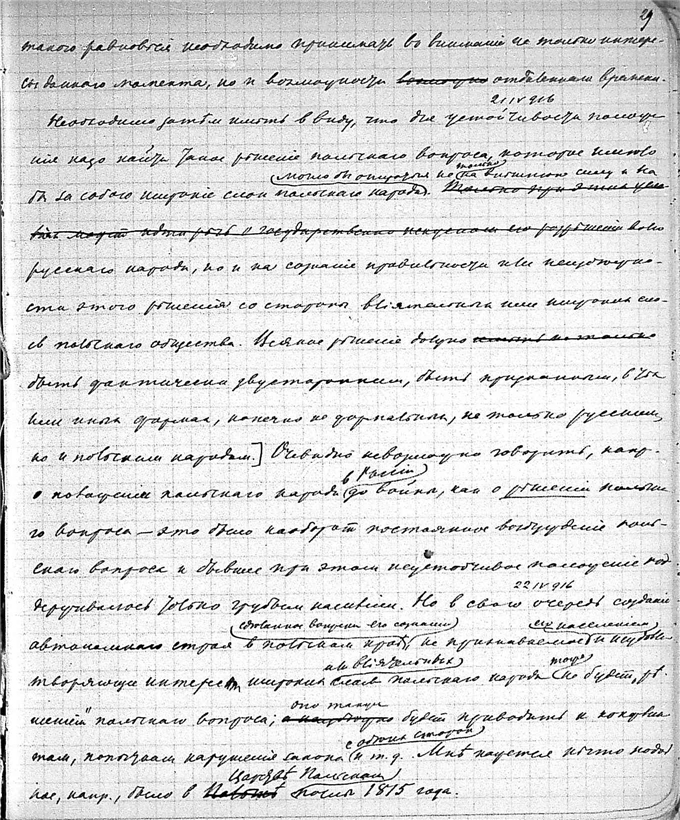 29
такого равновѣсія необходимо принимать во вниманіе не только интере-
сы даннаго момента, но и возможности возможно отдаленнаго времени.
21 IV 916
Необходимо затѣмъ имѣть в виду, что для устойчивости положе-
нія надо найти такое рѣшеніе польскаго вопроса, которое имѣло
могло бы опираться не только на внѣшнюю силу и на
бы за собою широкіе слои польскаго народа. Только при этих усло-
віях может идти рѣчь о государственно искусном его разрѣшеніи волю
русскаго народа, но и на сознаніе правильности или неизбѣжно-
сти этого рѣшенія со стороны вліятельных или широких сло-
ев польскаго общества. Всякое рѣшеніе должно имѣть не только
быть фактически двусторонним, быть признанным, в тѣх
или иных формах, конечно не формальных, не только русским,
но и польским народом.] Очевидно невозможно говорить, напр.
о положеніи польскаго народа в Россіи до войны, как о рѣшеніи польска-
го вопроса — это было наоборот постоянное возбужденіе поль-
скаго вопроса и бывшее при этом неустойчивое положеніе под-
держивалось только грубым насиліем. Но в свою очередь созданіе
22 IV 916
автономнаго строя в польском краѣ, созданное вопреки его сознанію, не признаваемаго его населеніем и неудовле-
творяющаго интересам широких или вліятельных слоев польскаго народа тоже не будет „рѣ-
шеніем" польскаго вопроса; оно также будет приводить к конфлик-
там, попыткам нарушенія закона с обѣих сторон и т. д. Мнѣ кажется нѣчто подоб-
ное, напр., было в Царствѣ Польском послѣ 1815 года.